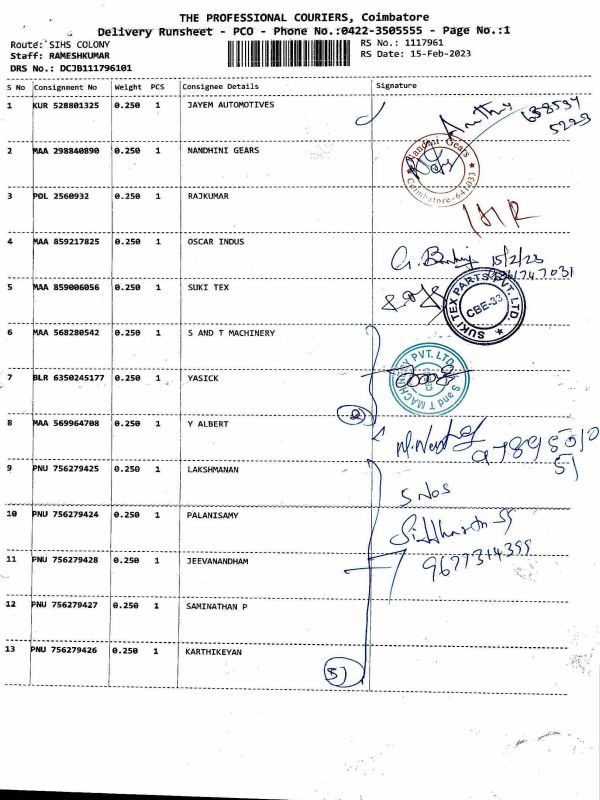 THE PROFESSIONAL COURIERS, Coimbatore
Delivery Runsheet - PCO - Phone No.:0422-3505555 - Page No.:1
Route: SIHS COLONY
Staff: RAMESHKUMAR
DRS No.: DCJB111796101
RS No.: 1117961
RS Date: 15-Feb-2023
S No Consignment No Weight PCS Consignee Details Signature
1 KUR 528801325 0.250 1 JAYEM AUTOMOTIVES
2 MAA 298840890 0.250 1 NANDHINI GEARS
Nandhini Gears
Coimbatore-641033
3 POL 2560932 0.250 1 RAJKUMAR
4 MAA 859217825 0.250 1 OSCAR INDUS
15/2/23
5 MAA 859006056 0.250 1 SUKI TEX
SUKI TEX PARTS PVT. LTD.
CBE-33
6 MAA 568280542 0.250 1 S AND T MACHINERY
S and T MACHINERY PVT. LTD
7 BLR 6350245177 0.250 1 YASICK
2
8 MAA 569964708 0.250 1 Y ALBERT
9 PNU 756279425 0.250 1 LAKSHMANAN
5 Nos
10 PNU 756279424 0.250 1 PALANISAMY
11 PNU 756279428 0.250 1 JEEVANANDHAM
12 PNU 756279427 0.250 1 SAMINATHAN P
13 PNU 756279426 0.250 1 KARTHIKEYAN
5)